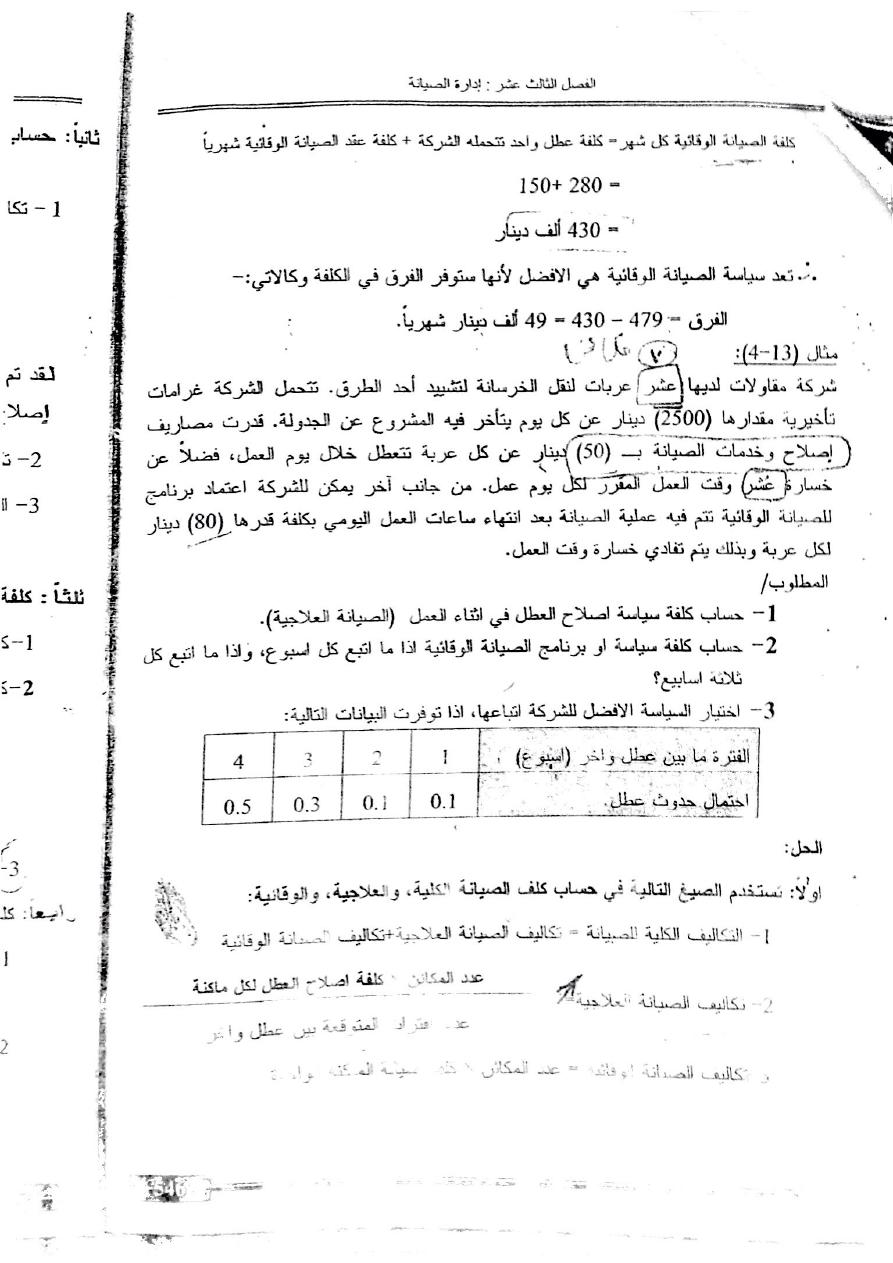 الفصل الثالث عشر : إدارة الصيانة
كلفة الصيانة الوقائية كل شهر= كلفة عطل واحد تتحمله الشركة + كلفة عقد الصيانة الوقائية شهرياً
= 280 +150
= 430 ألف دينار
∴ تعد سياسة الصيانة الوقائية هي الافضل لأنها ستوفر الفرق في الكلفة وكالاتي:-
الفرق = 479 – 430 = 49 ألف دينار شهرياً.
مثال (13-4):
شركة مقاولات لديها عشر عربات لنقل الخرسانة لتشييد أحد الطرق. تتحمل الشركة غرامات
تأخيرية مقدارها (2500) دينار عن كل يوم يتأخر فيه المشروع عن الجدولة. قدرت مصاريف
إصلاح وخدمات الصيانة بـ (50) دينار عن كل عربة تتعطل خلال يوم العمل، فضلاً عن
خسارة عُشر وقت العمل المقرر لكل يوم عمل. من جانب آخر يمكن للشركة اعتماد برنامج
للصيانة الوقائية تتم فيه عملية الصيانة بعد انتهاء ساعات العمل اليومي بكلفة قدرها (80) دينار
لكل عربة وبذلك يتم تفادي خسارة وقت العمل.
المطلوب/
1- حساب كلفة سياسة اصلاح العطل في اثناء العمل (الصيانة العلاجية).
2- حساب كلفة سياسة او برنامج الصيانة الوقائية اذا ما اتبع كل اسبوع، واذا ما اتبع كل
ثلاثة اسابيع؟
3- اختيار السياسة الافضل للشركة اتباعها، اذا توفرت البيانات التالية:
الفترة ما بين عطل واخر (اسبوع) 1 2 3 4
احتمال حدوث عطل. 0.1 0.1 0.3 0.5
الحل:
اولاً: نستخدم الصيغ التالية في حساب كلف الصيانة الكلية، والعلاجية، والوقائية:
1- التكاليف الكلية للصيانة = تكاليف الصيانة العلاجية+تكاليف الصيانة الوقائية
عدد المكائن × كلفة اصلاح العطل لكل ماكنة
2- تكاليف الصيانة العلاجية=
المتوقعة بين عطل واخر
تكاليف الصيانة الوقائية = عدد المكائن ×
546
ثانياً: حساب
1- تكا
لقد تم
إصلا
2-
3-
ثلثاً: كلفة
1-
2-
3-
رابعاً: كل
1
2